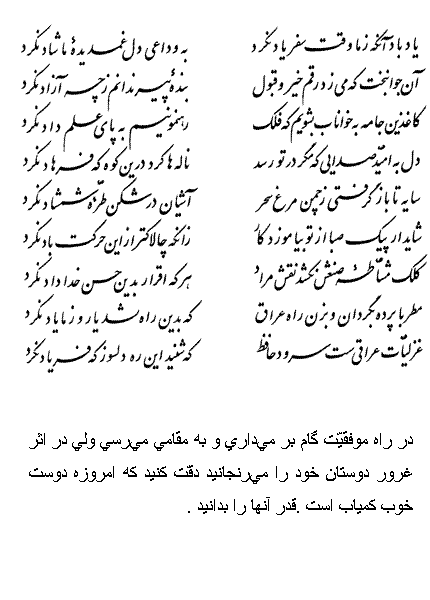 یاد باد آنکه ز ما وقت سفر یاد نکرد به وداعی دل غمدیدهٔ ما شاد نکرد
آن جوانبخت که می‌زد رقم خیر و قبول بندهٔ پیر ندانم ز چه آزاد نکرد
کاغذین جامه به خوناب بشویم که فلک رهنمونیم به پای علم داد نکرد
دل به امید صدایی که مگر در تو رسد ناله‌ها کرد درین کوه که فرهاد نکرد
سایه تا باز گرفتی ز چمن مرغ سحر آشیان در شکن طرهٔ شمشاد نکرد
شاید ار پیک صبا از تو بیاموزد کار زانکه چالاکتر از این حرکت باد نکرد
کلک مشاطهٔ صنعش نکشد نقش مراد هر که اقرار بدین حسن خداداد نکرد
مطربا پرده بگردان و بزن راه عراق که بدین راه بشد یار و ز ما یاد نکرد
غزلیات عراقی‌ست سرود حافظ که شنید این ره دلسوز که فریاد نکرد
در راه موفقيّت گام بر مي‌داري و به مقامي مي‌رسي ولي در اثر
غرور دوستان خود را مي‌رنجانيد دقّت كنيد كه امروزه دوست
خوب كمياب است .قدر آنها را بدانيد .